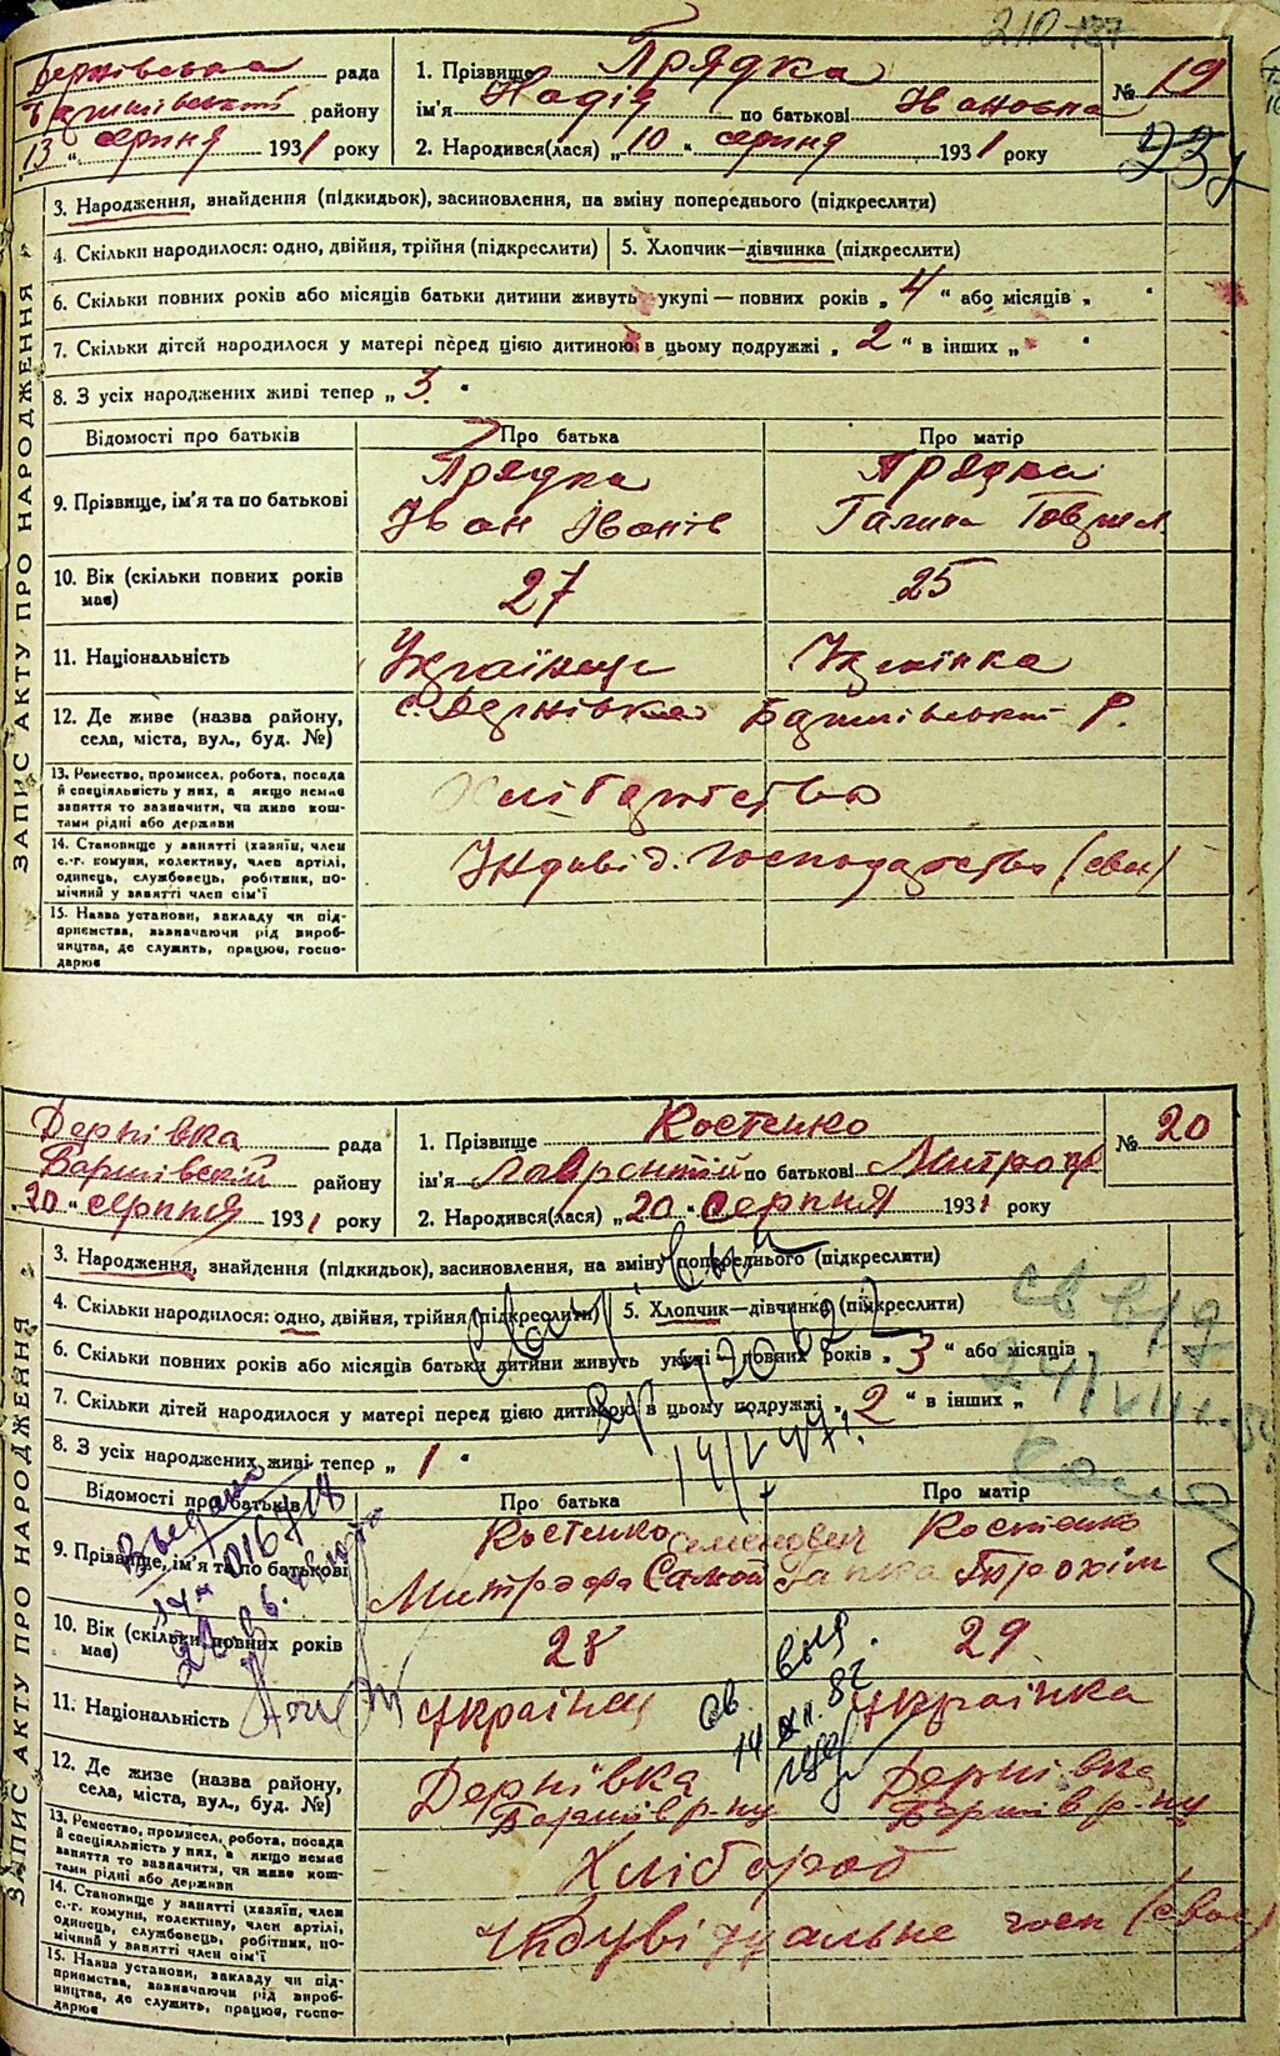 210
Дернівська рада
Баришівський району
"13" серпня 1931 року
1. Прізвище Прядка
ім'я Надія по батькові Івановна
2. Народився(лася) „10" серпня 1931 року
№ 19
ЗАПИС АКТУ ПРО НАРОДЖЕННЯ
3. Народження, знайдення (підкидьок), засиновлення, на вміну попереднього (підкреслити)
4. Скільки народилося: одно, двійня, трійня (підкреслити) 5. Хлопчик—дівчинка (підкреслити)
6. Скільки повних років або місяців батьки дитини живуть укупі — повних років „4" або місяців „ "
7. Скільки дітей народилося у матері перед цією дитиною в цьому подружжі „2" в інших „ "
8. З усіх народжених живі тепер „3"
Відомості про батьків Про батька Про матір
9. Прізвище, ім'я та по батькові
Прядка Прядка
Іван Іванів Галина
10. Вік (скільки повних років має)
27 25
11. Національність
Українець Українка
12. Де живе (назва району, села, міста, вул., буд. №)
с. Дернівка Баришівський р.
13. Ремество, промисел, робота, посада
й спеціяльність у них, а якщо немає
заняття то зазначити, чи живе кош-
тами рідні або держави
Хліборобство
14. Становище у занятті (хазяїн, член
с.-г. комуни, колективу, член артілі,
одинець, службовець, робітник, по-
мічний у занятті член сім'ї
Індивід. господарство (своє)
15. Назва установи, закладу чи під-
приємства, вазначаючи рід вироб-
ництва, де служить, працює, госпо-
дарює
Дернівка рада
Баришівский району
"20" серпня 1931 року
1. Прізвище Костенко
ім'я Лаврентій по батькові Митроф
2. Народився(лася) „20" Серпня 1931 року
№ 20
ЗАПИС АКТУ ПРО НАРОДЖЕННЯ
3. Народження, знайдення (підкидьок), засиновлення, на вміну попереднього (підкреслити)
4. Скільки народилося: одно, двійня, трійня (підкреслити) 5. Хлопчик—дівчинка (підкреслити)
6. Скільки повних років або місяців батьки дитини живуть укупі — повних років „3" або місяців „
7. Скільки дітей народилося у матері перед цією дитиною в цьому подружжі „2" в інших „
8. З усіх народжених живі тепер „1"
Відомості про батьків Про батька Про матір
9. Прізвище, ім'я та по батькові
Костенко Семенович Костенко
Митрофа Ганна Трохім
10. Вік (скільки повних років має)
28 29
11. Національність
українец українка
12. Де живе (назва району, села, міста, вул., буд. №)
Дернівка Дернівка
Баришів р-ну Баришів р-ну
13. Ремество, промисел, робота, посада
й спеціяльність у них, а якщо немає
заняття то зазначити, чи живе кош-
тами рідні або держави
Хлібороб
14. Становище у занятті (хазяїн, член
с.-г. комуни, колективу, член артілі,
одинець, службовець, робітник, по-
мічний у занятті член сім'ї
Індувідуальне госп (своє)
15. Назва установи, закладу чи під-
приємства, вазначаючи рід вироб-
ництва, де служить, працює, госпо-
дарює